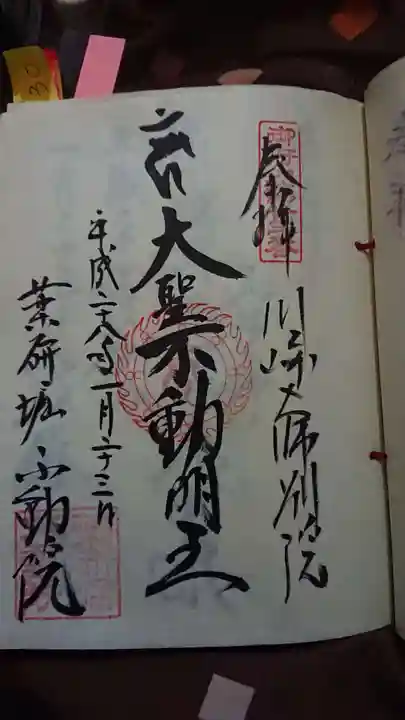 奉拝
川崎大師別院
大聖不動明王
平成二十八年一月二十三日
薬研堀不動院
30